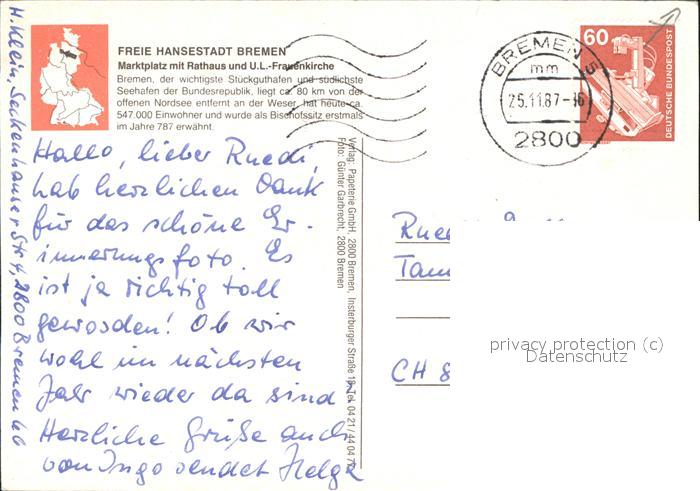 FREIE HANSESTADT BREMEN
Marktplatz mit Rathaus und U.L.-Frauenkirche
Bremen, der wichtigste Stückguthafen und südlichste
Seehafen der Bundesrepublik, liegt ca. 80 km von der
offenen Nordsee entfernt an der Weser, hat heute ca.
547.000 Einwohner und wurde als Bischofssitz erstmals
im Jahre 787 erwähnt.
Hallo, lieber Ruedi,
hab herzlichen Dank
für das schöne Er-
innerungsfoto. Es
ist ja richtig toll
geworden! Ob wir
wohl im nächsten
Jahr wieder da sind
Herzliche Grüße auch
von Ingo sendet Helga
H. Klein, Seckenhauser Str 4, 2800 Bremen 66
Verlag: Papeterie GmbH, 2800 Bremen, Insterburger Straße Tel. 04 21 / 44 04
Foto: Günter Garbrecht, 2800 Bremen
BREMEN 5
mm
25.11.87-16
2800
60
DEUTSCHE BUNDESPOST
CH 8
privacy protection (c)
Datenschutz